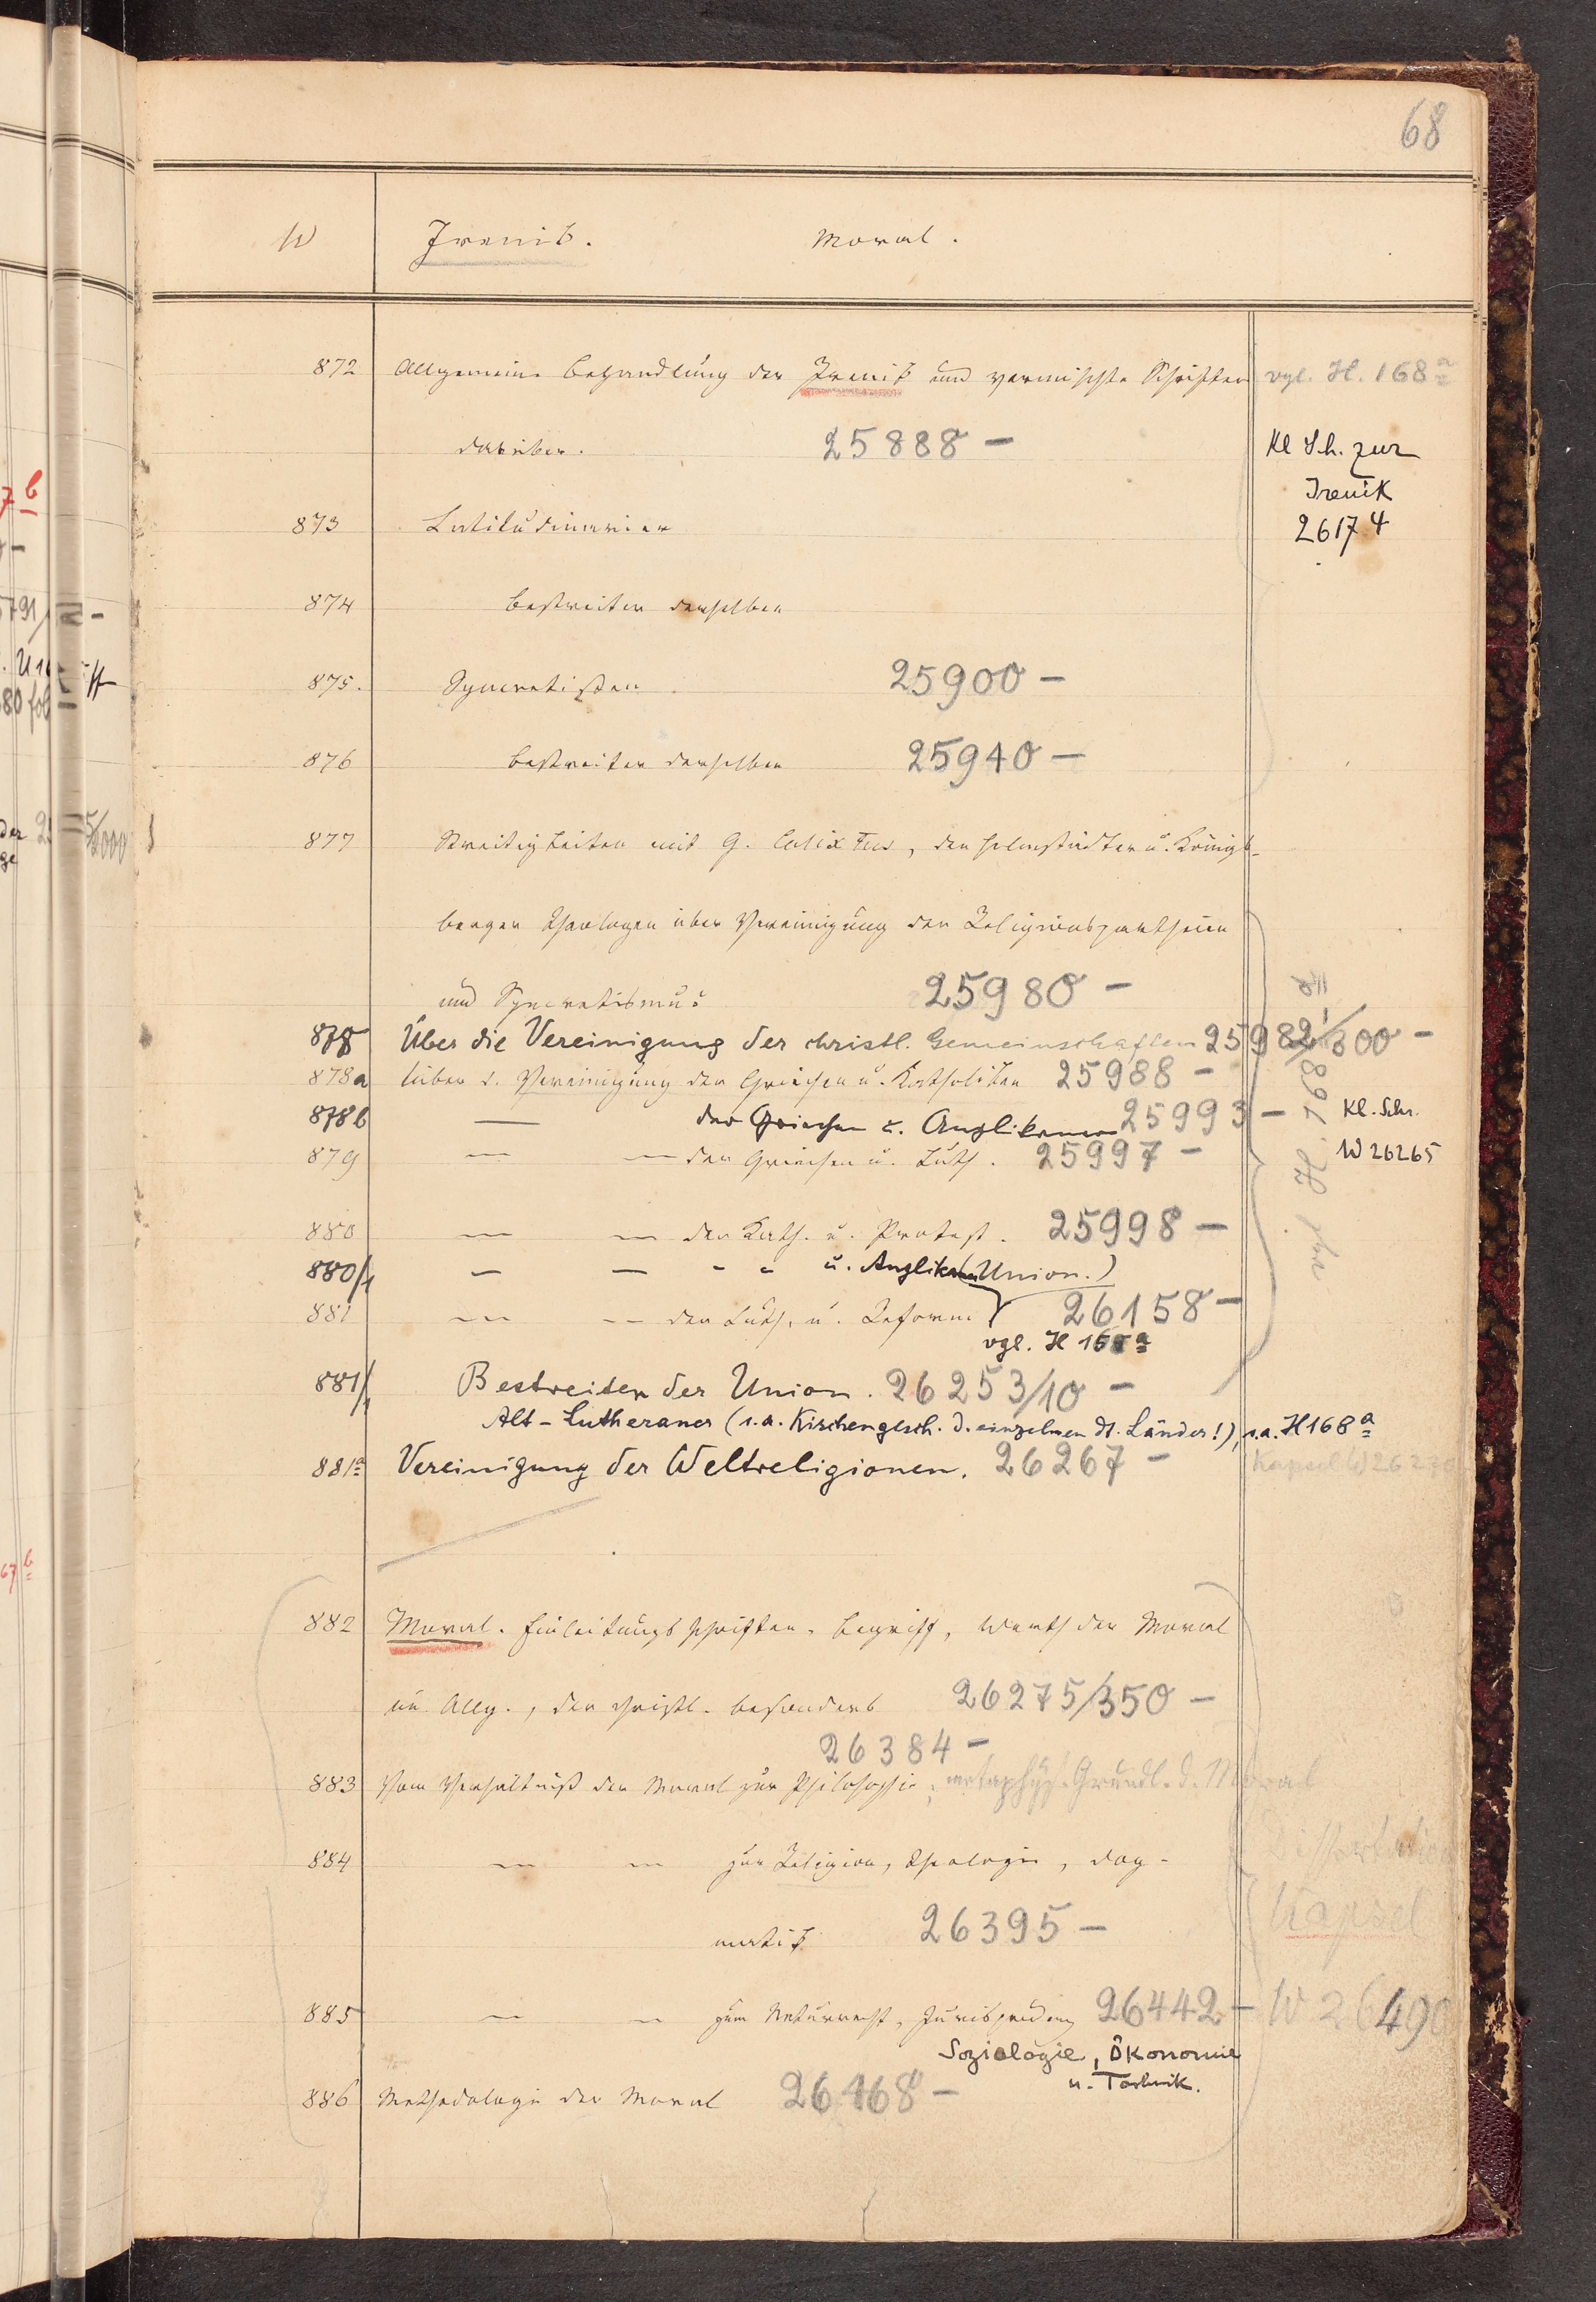 68
W Irenik. Moral.
872 Allgemeine Behandlung der Irenik und vermischte Schriften vgl. H. 168a
darüber. 25888 —
Kl Sch. zur
Irenik
26174
873 Latitudinarier
874 Bestreiter derselben
875. Syncretisten. 25900 —
876 Bestreiter derselben 25940 —
877 Streitigkeiten mit G. Calixtus, den Helmstädter u. Königs-
berger Theologen über Vereinigung der Religionspartheien
und Syncretismus 25980 —
878 Über die Vereinigung der christl. Gemeinschaften 25982/300 —
878a über d. Vereinigung der Griechen u. Katholiken 25988 —
878b — der Griechen u. Anglikaner 25993 — Kl. Schr.
879 — — der Griechen u. Luth. 25997 — W 26265
vgl. H. 168
880 — — der Kath. u. Protest. 25998 —
880/1 — — " " u. Anglikaner (Union.)
881 — — der Luth. u. Reform. 26158 —
vgl. H 168a
881/1 Bestreiter der Union. 26253/10 —
Alt-Lutheraner (s.a. Kirchengesch. d. einzelnen dt. Länder!), s.a. H168a
881a Vereinigung der Weltreligionen. 26267 — Kapsel W 26270
882 Moral. Einleitungsschriften. Begriff, Werth der Moral
im Allg., der christl. besonders 26275/350 —
26384 —
883 Vom Verhältniß der Moral zur Philosophie; metaphys. Grundl. d. Moral
884 — — zur Religion, Theologie, Dog-
Dissertation
Kapsel
matik 26395 —
885 — — zum Naturrecht, Jurisprudenz 26442 — W 26490
Soziologie, Ökonomie
u. Technik.
886 Methodologie der Moral 26468 —